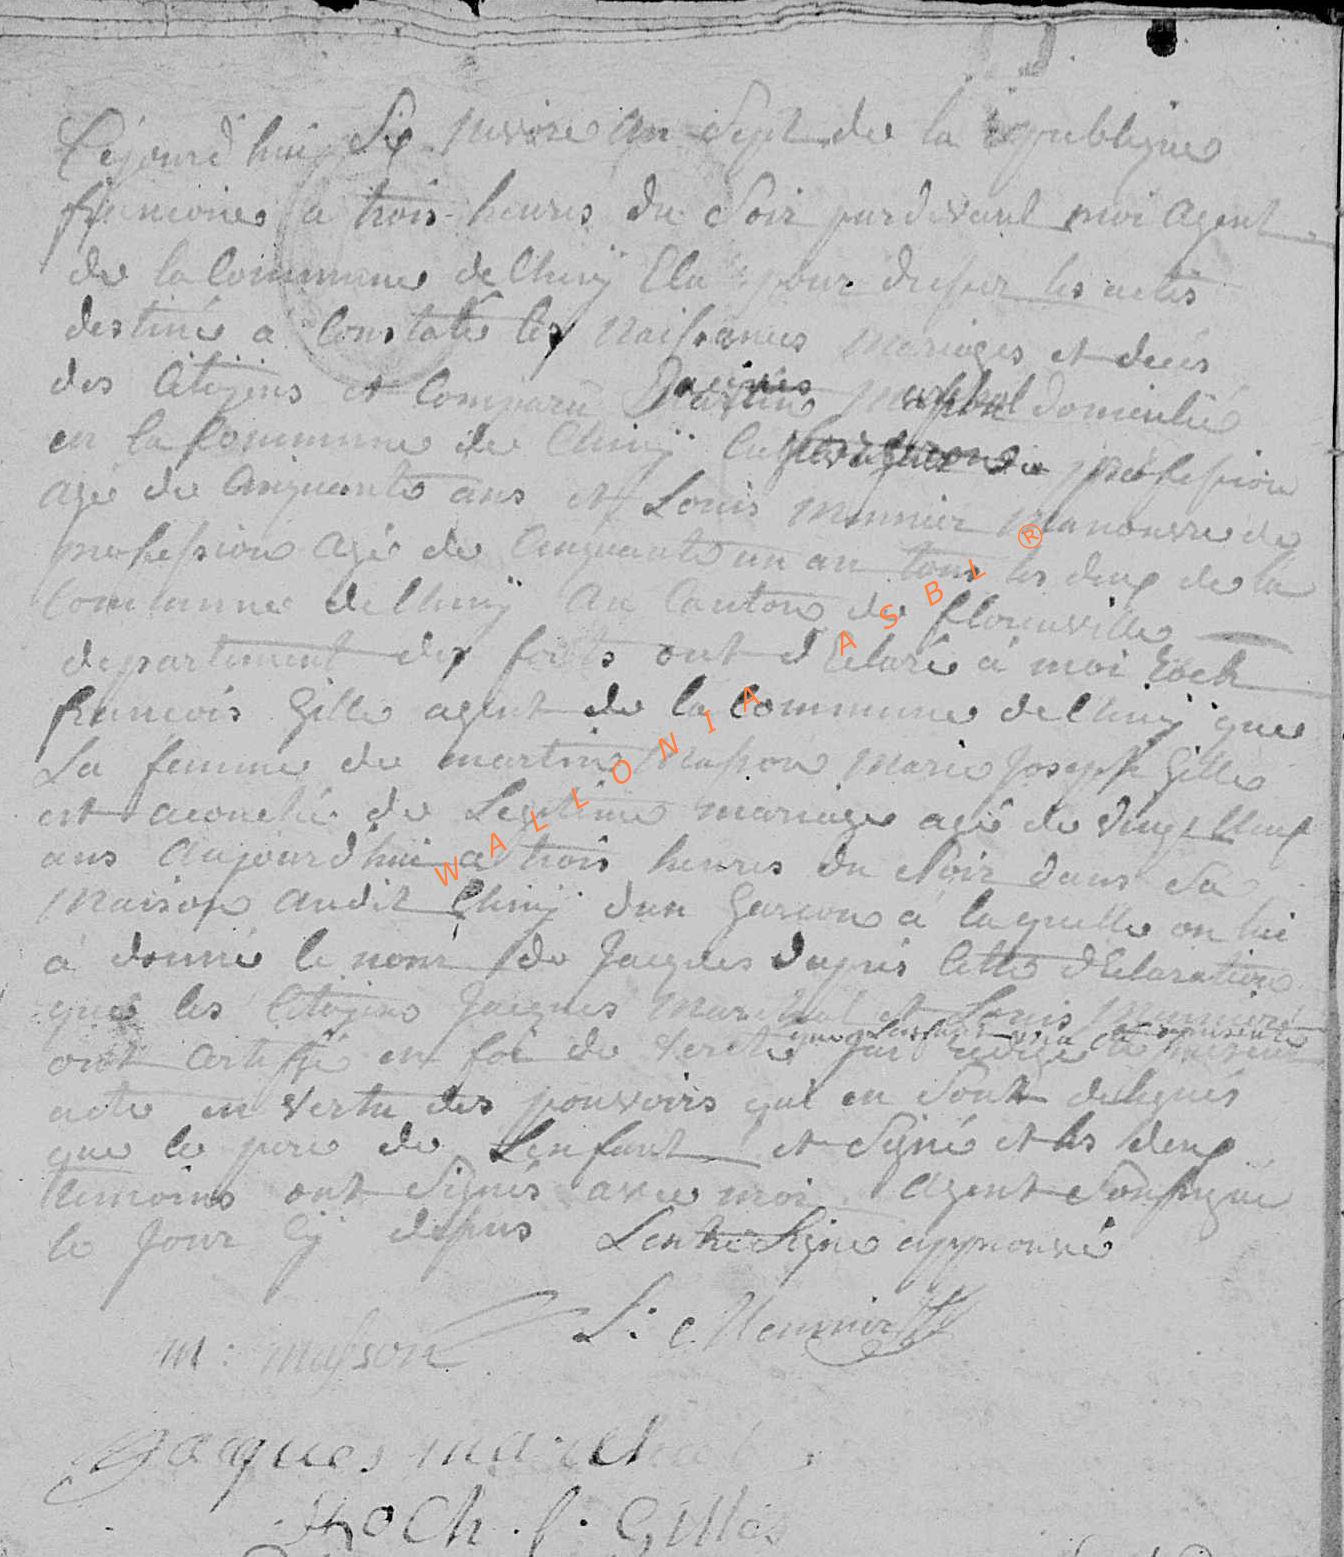 Cejourd'hui Six nivose an Sept de la republique
francoise a trois heures du Soir pardevant moi agent
de la Commune de Chinÿ Elu pour dresser les actes
destiné a Constaté les Naissances mariages et décés
des Citoÿens et Comparu Jacques marchal domicilié
en la Commune de Chinÿ profession
agé de Cinquante ans et Louis Munnier Manouvre de
profession agé de Cinquante un an tous les deux de la
Commune de Chinÿ au Canton de florenville
departement des forêts ont dEclaré a moi Roch
francois Gille agent de la Commune de Chinÿ que
La femme de martin Masson Marie Joseph Gille
est acouché de Legitime mariage agé de vingt Neuf
ans aujourd'hui a trois heures du Soir dans Sa
Maison audit Chinÿ dun Garcon a laquelle on lui
a donné le nom de Jacques dapres Cette dEclaration
que les Citoÿens Jacques Marechal et Louis Munnier
ont Certiffié en foi de verité jai redigé le present
acte en vertu des pouvoirs qui en Sont delegués
que le pere de Lenfant et Signé et les deux
temoins ont Signés avec moi agent Soussigné
le Jour Cÿ dessus Lentre Ligne approuvé
m : masson L : Meunnier
Jacques marechal
Roch . f . Gilles
W A L L O N I A A S B L ®